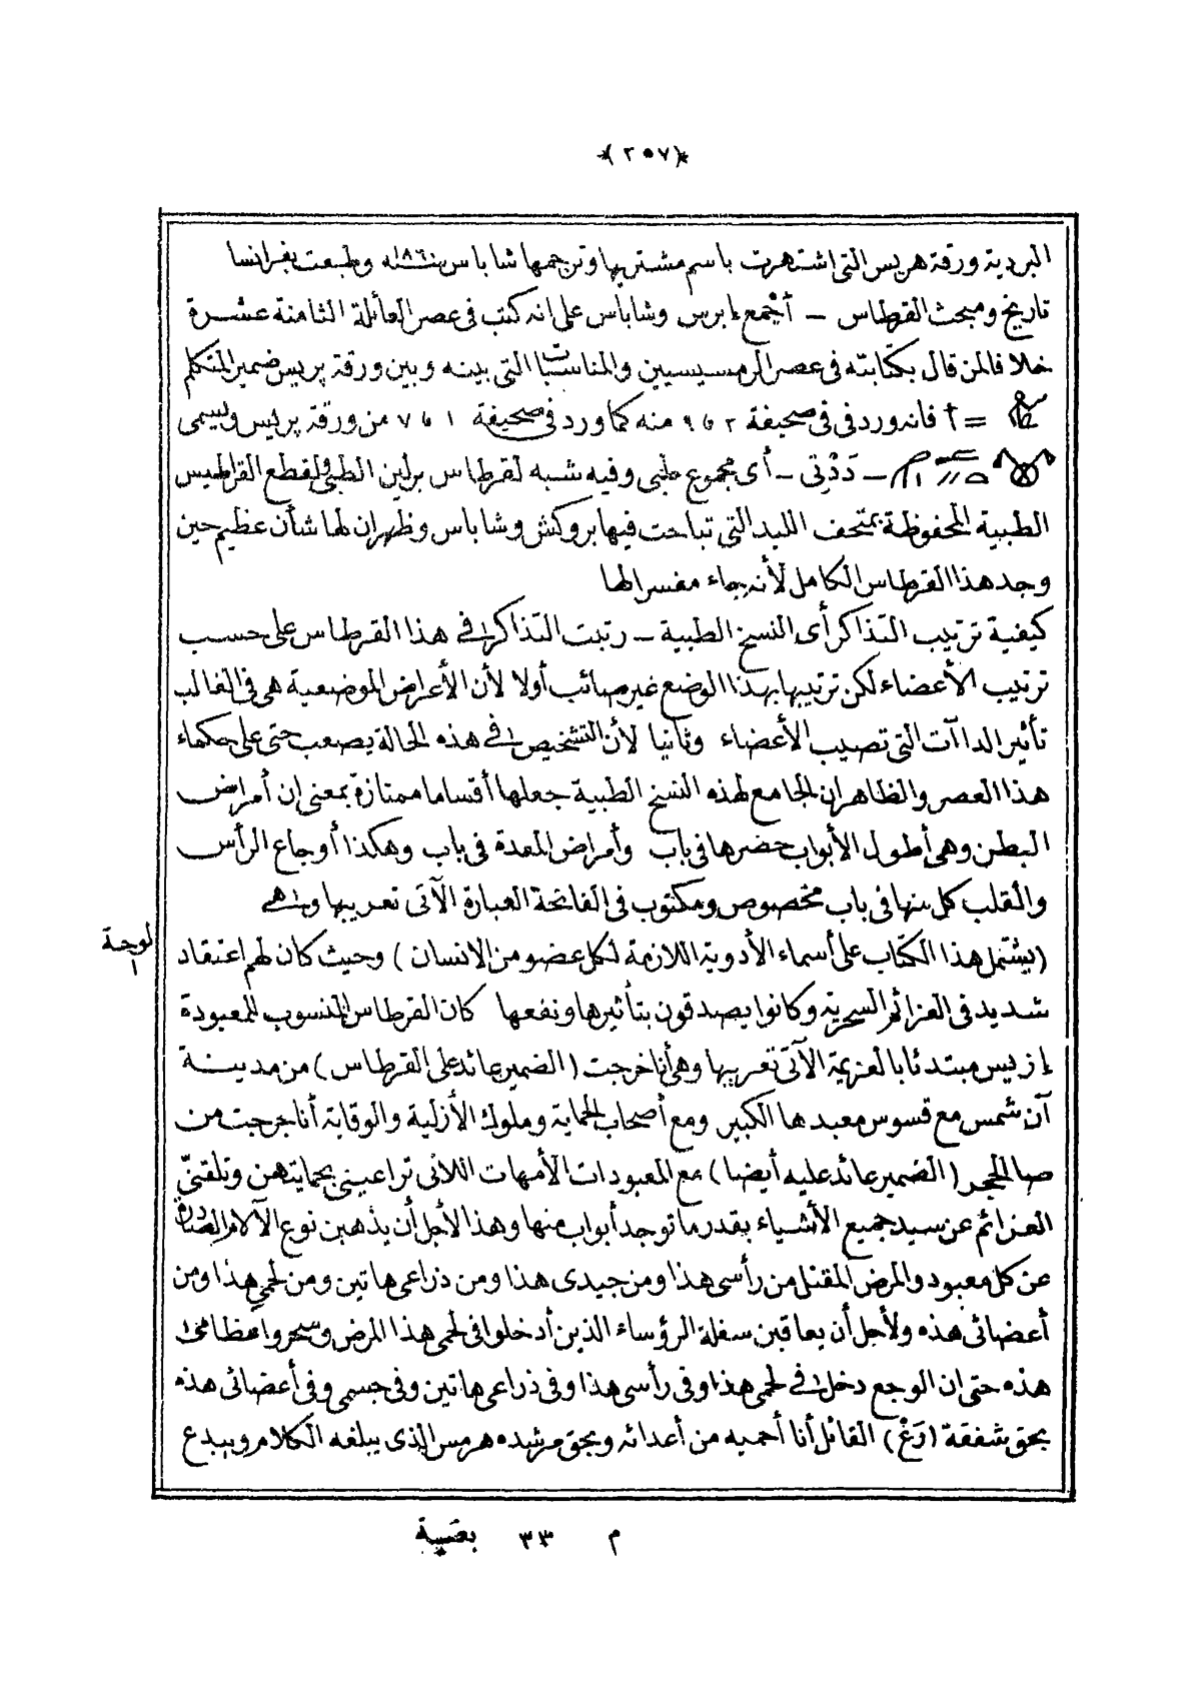 ﴿٢٥٧﴾
البردية ورقة هريس التى اشتهرت باسم مشتريها وترجمها شاباس سنة ١٨٦٠ وطبعت بفرانسا
تاريخ ومبحث القرطاس – أجمع إبرس وشاباس على انه كتب فى عصر العائلة الثامنة عشرة
خلافا لمن قال بكتابته فى عصر الرمسيسيين والمناسبات التى بينه وبين ورقة پريس ضمير المتكلم
= أ فانه ورد فى فى صحيفة ٢ و ٩ منه كما ورد فى صحيفة ١ و ٧ من ورقة پريس ويسمى
– دَدْتِى – أى مجموع طبى وفيه شبه لقرطاس برلين الطبى ولقطع القراطيس
الطبية المحفوظة بمتحف الليد التى تباحث فيها بروكش وشاباس وظهر ان لها شأن عظيم حين
وجد هذا القرطاس الكامل لأنه جاء مفسرا لها
كيفية ترتيب التذاكر أى النسخ الطبية – رتبت التذاكر فى هذا القرطاس على حسب
ترتيب الأعضاء لكن ترتيبها بهذا الوضع غير صائب أولا لأن الأعراض الموضعية هى فى الغالب
تأثير الداآت التى تصيب الأعضاء وثانيا لأن التشخيص فى هذه الحالة يصعب حتى على حكماء
هذا العصر والظاهر ان الجامع لهذه النسخ الطبية جعلها أقساما ممتازة بمعنى إن أمراض
البطن وهى أطول الأبواب حضرها فى باب وأمراض المعدة فى باب وهكذا أوجاع الرأس
والقلب كل منها فى باب مخصوص ومكتوب فى الفاتحة العبارة الآتى تعريبها وهى
لوحة ١
(يشتمل هذا الكتاب على أسماء الأدوية اللازمة لكل عضو من الانسان) وحيث كان لهم اعتقاد
شديد فى العزائم السحرية وكانوا يصدقون بتأثيرها ونفعها كان القرطاس المنسوب للمعبودة
إزيس مبتدئا بالعزيمة الآتى تعريبها وهى أنا خرجت (الضمير عائد على القرطاس) من مدينة
آن شمس مع قسوس معبدها الكبير ومع أصحاب الحماية وملوك الأزلية والوقاية أنا خرجت من
صا الحجر (الضمير عائد عليه أيضا) مع المعبودات الأمهات اللاتى تراعينى بحمايتهن وتلقننى
العزائم عن سيد جميع الأشياء بقدر ما توجد أبواب منها وهذا لأجل أن يذهبن نوع الآلام الصادرة
عن كل معبود والمرض المقتل من رأسى هذا ومن جيدى هذا ومن ذراعى هاتين ومن لحمى هذا ومن
أعضائى هذه ولأجل أن يعاقبن سفلة الرؤساء الذين أدخلوا فى لحمى هذا المرض وسحروا عظامى
هذه حتى ان الوجع دخل فى لحمى هذا وفى رأسى هذا وفى ذراعى هاتين وفى جسمى وفى أعضائى هذه
بحق شفقة (رَعْ) القائل أنا أحميه من أعدائه وبحق مرشده هرمس الذى يبلغه الكلام ويبدع
م ٣٣ بغية